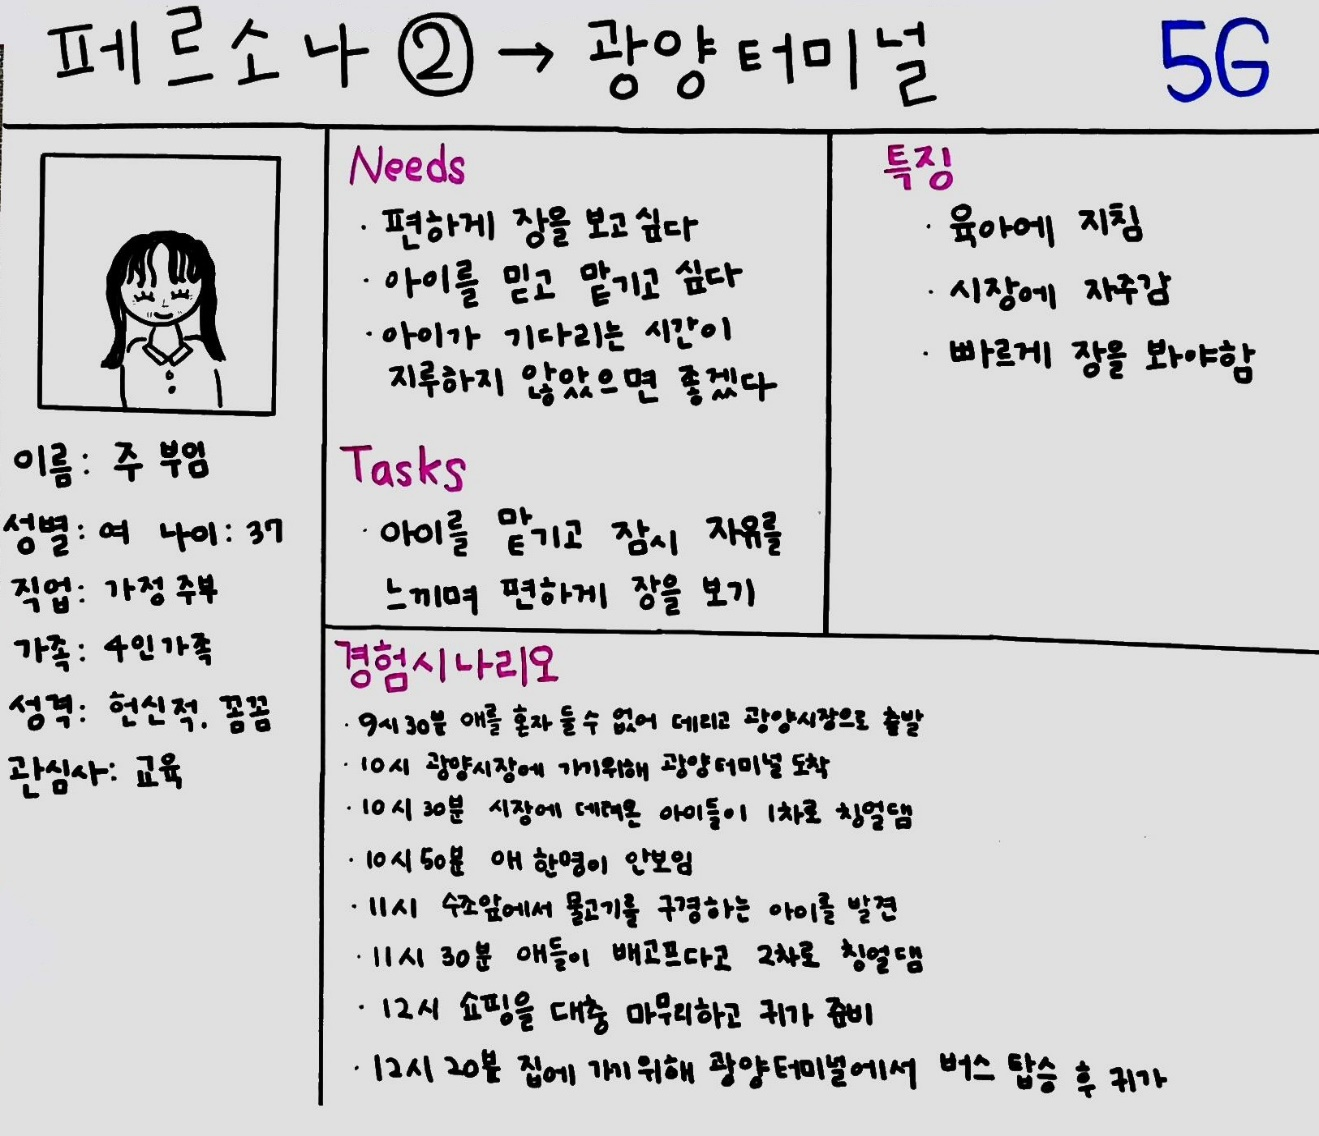 페르소나 ② → 광양터미널
5G
이름: 주 부엄
성별: 여 나이: 37
직업: 가정 주부
가족: 4인가족
성격: 헌신적, 꼼꼼
관심사: 교육
Needs
· 편하게 장을 보고싶다
· 아이를 믿고 맡기고 싶다
· 아이가 기다리는 시간이
지루하지 않았으면 좋겠다
Tasks
· 아이를 맡기고 잠시 자유를
느끼며 편하게 장을 보기
특징
· 육아에 지침
· 시장에 자주감
· 빠르게 장을 봐야함
경험시나리오
· 9시 30분 애를 혼자 둘수 없어 데리고 광양시장으로 출발
· 10시 광양시장에 가기위해 광양터미널 도착
· 10시 30분 시장에 데려온 아이들이 1차로 칭얼댐
· 10시 50분 애 한명이 안보임
· 11시 수조앞에서 물고기를 구경하는 아이를 발견
· 11시 30분 애들이 배고프다고 2차로 칭얼댐
· 12시 쇼핑을 대충 마무리하고 귀가 준비
· 12시 20분 집에 가기위해 광양터미널에서 버스 탑승 후 귀가